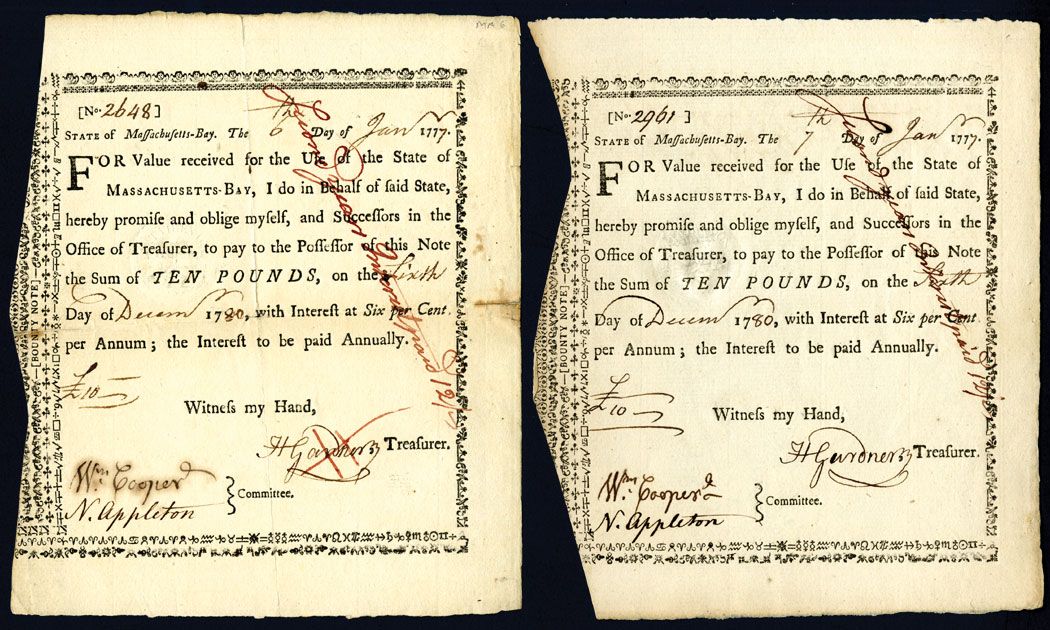 MA 6
[No. 2648]
STATE of Maſſachuſetts-Bay. The 6th Day of Jan 1777.
FOR Value received for the Uſe of the State of
MASSACHUSETTS-BAY, I do in Behalf of ſaid State,
hereby promiſe and oblige myſelf, and Succeſſors in the
Office of Treaſurer, to pay to the Poſſeſſor of this Note
the Sum of TEN POUNDS, on the Sixth
Day of Decem 1780, with Intereſt at Six per Cent.
per Annum; the Intereſt to be paid Annually.
£10
Witneſs my Hand,
H Gardner Treaſurer.
Wm. Cooper
N. Appleton
Committee.
[BOUNTY NOTE]
[No. 2961]
STATE of Maſſachuſetts-Bay. The 7th Day of Jan 1777.
FOR Value received for the Uſe of the State of
MASSACHUSETTS-BAY, I do in Behalf of ſaid State,
hereby promiſe and oblige myſelf, and Succeſſors in the
Office of Treaſurer, to pay to the Poſſeſſor of this Note
the Sum of TEN POUNDS, on the Sixth
Day of Decem 1780, with Intereſt at Six per Cent.
per Annum; the Intereſt to be paid Annually.
£10
Witneſs my Hand,
H Gardner Treaſurer.
Wm. Cooper
N. Appleton
Committee.
[BOUNTY NOTE]